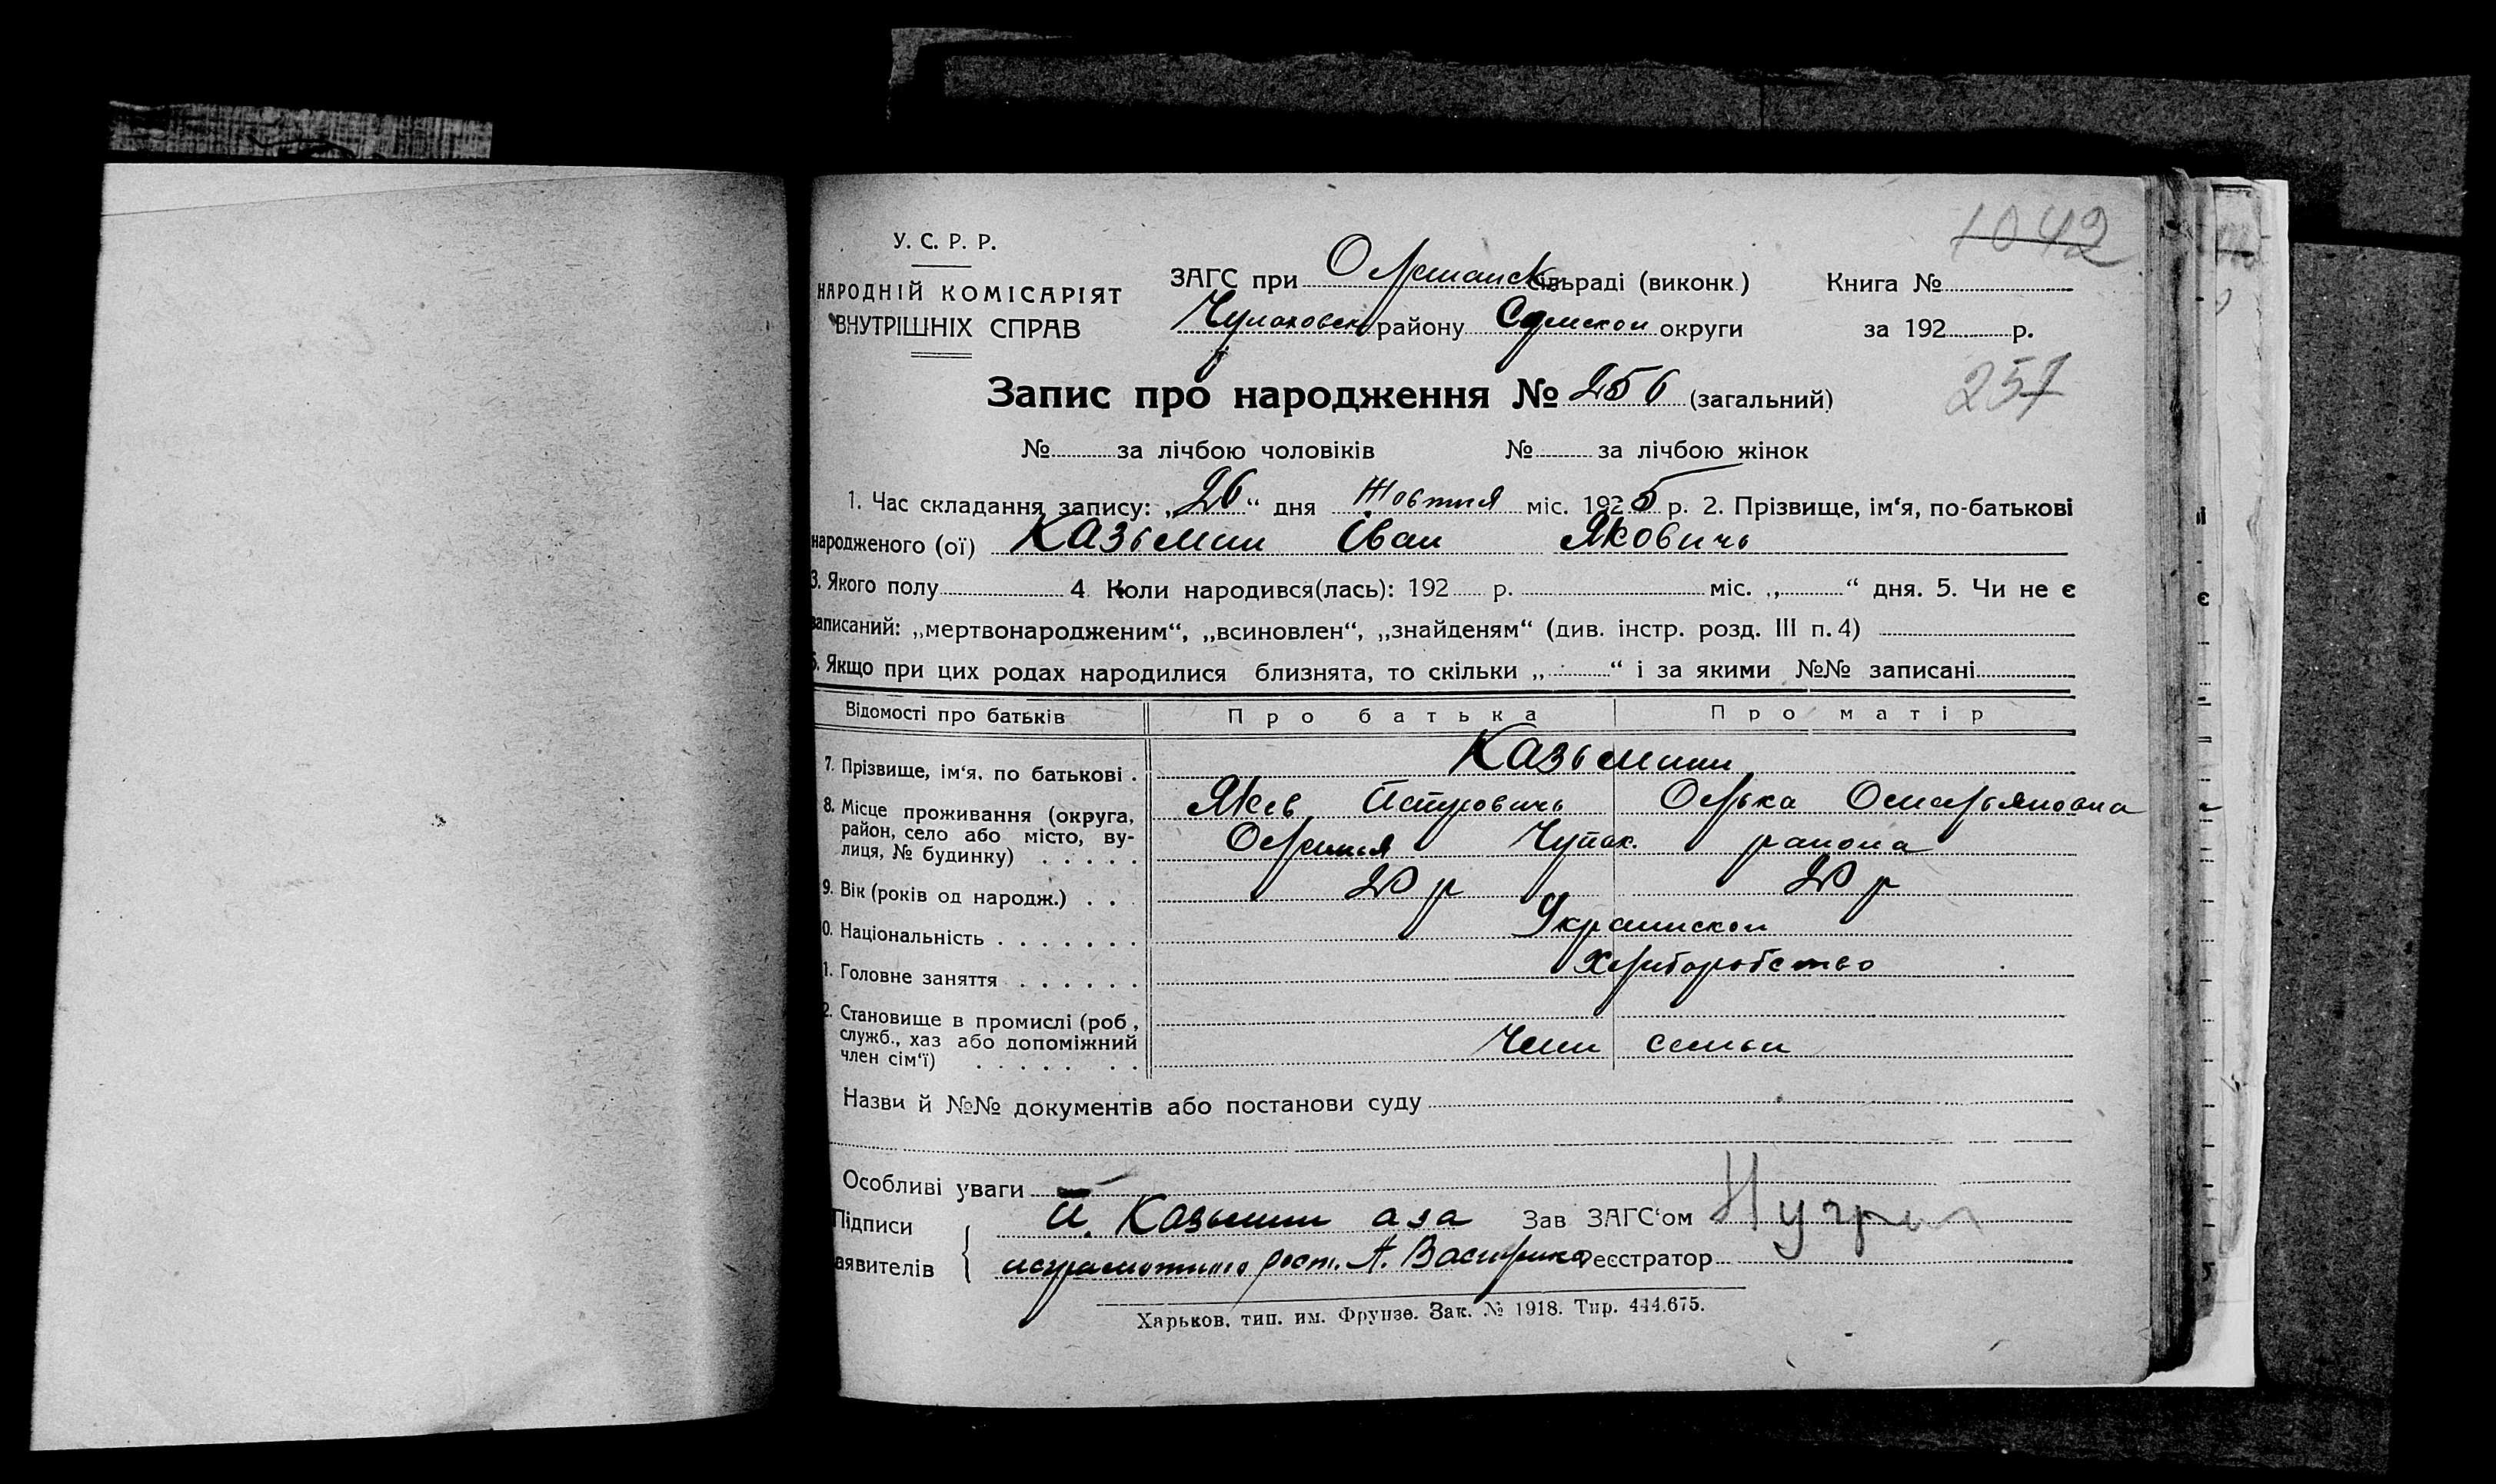 1042
У. С. Р. Р.
НАРОДНІЙ КОМІСАРІЯТ
ВНУТРІШНІХ СПРАВ
ЗАГС при Олешанск сільраді (виконк.)
Чупаховск району Сумской округи
Книга №
за 192 р.
Запис про народження № 256 (загальний)
257
№ за лічбою чоловіків № за лічбою жінок
1. Час складання запису: „26“ дня Жовтня міс. 1925 р. 2. Прізвище, ім‘я, по-батькові
народженого (ої) Казьмин Іван Яковичь
3. Якого полу 4. Коли народився(лась): 192 р. міс. „ “ дня. 5. Чи не є
записаний: „мертвонародженим“, „всиновлен“, „знайденям“ (див. інстр. розд. III п. 4)
6. Якщо при цих родах народилися близнята, то скільки „ “ і за якими №№ записані
Відомості про батьків Про батька Про матір
7. Прізвище, ім‘я, по батькові . Казьмини
Яков Петровичь Олька Омельяновна
8. Місце проживання (округа,
район, село або місто, ву-
лиця, № будинку) . . . . . Олешня Чупах. района
9. Вік (років од народж.) . . . 20 р 20 р
0. Національність . . . . . . . Украинской
1. Головне заняття . . . . . . Хлиборобство
2. Становище в промислі (роб.,
служб., хаз або допоміжний
член сім‘ї) . . . . . . . Член семьи
Назви й №№ документів або постанови суду
Особливі уваги
Підписи
аявителів
Казьмин а за
неграмотного росп. А. Василенко
Зав ЗАГС‘ом
Реєстратор
Харьков, тип. им. Фрунзе. Зак. № 1918. Тир. 444.675.